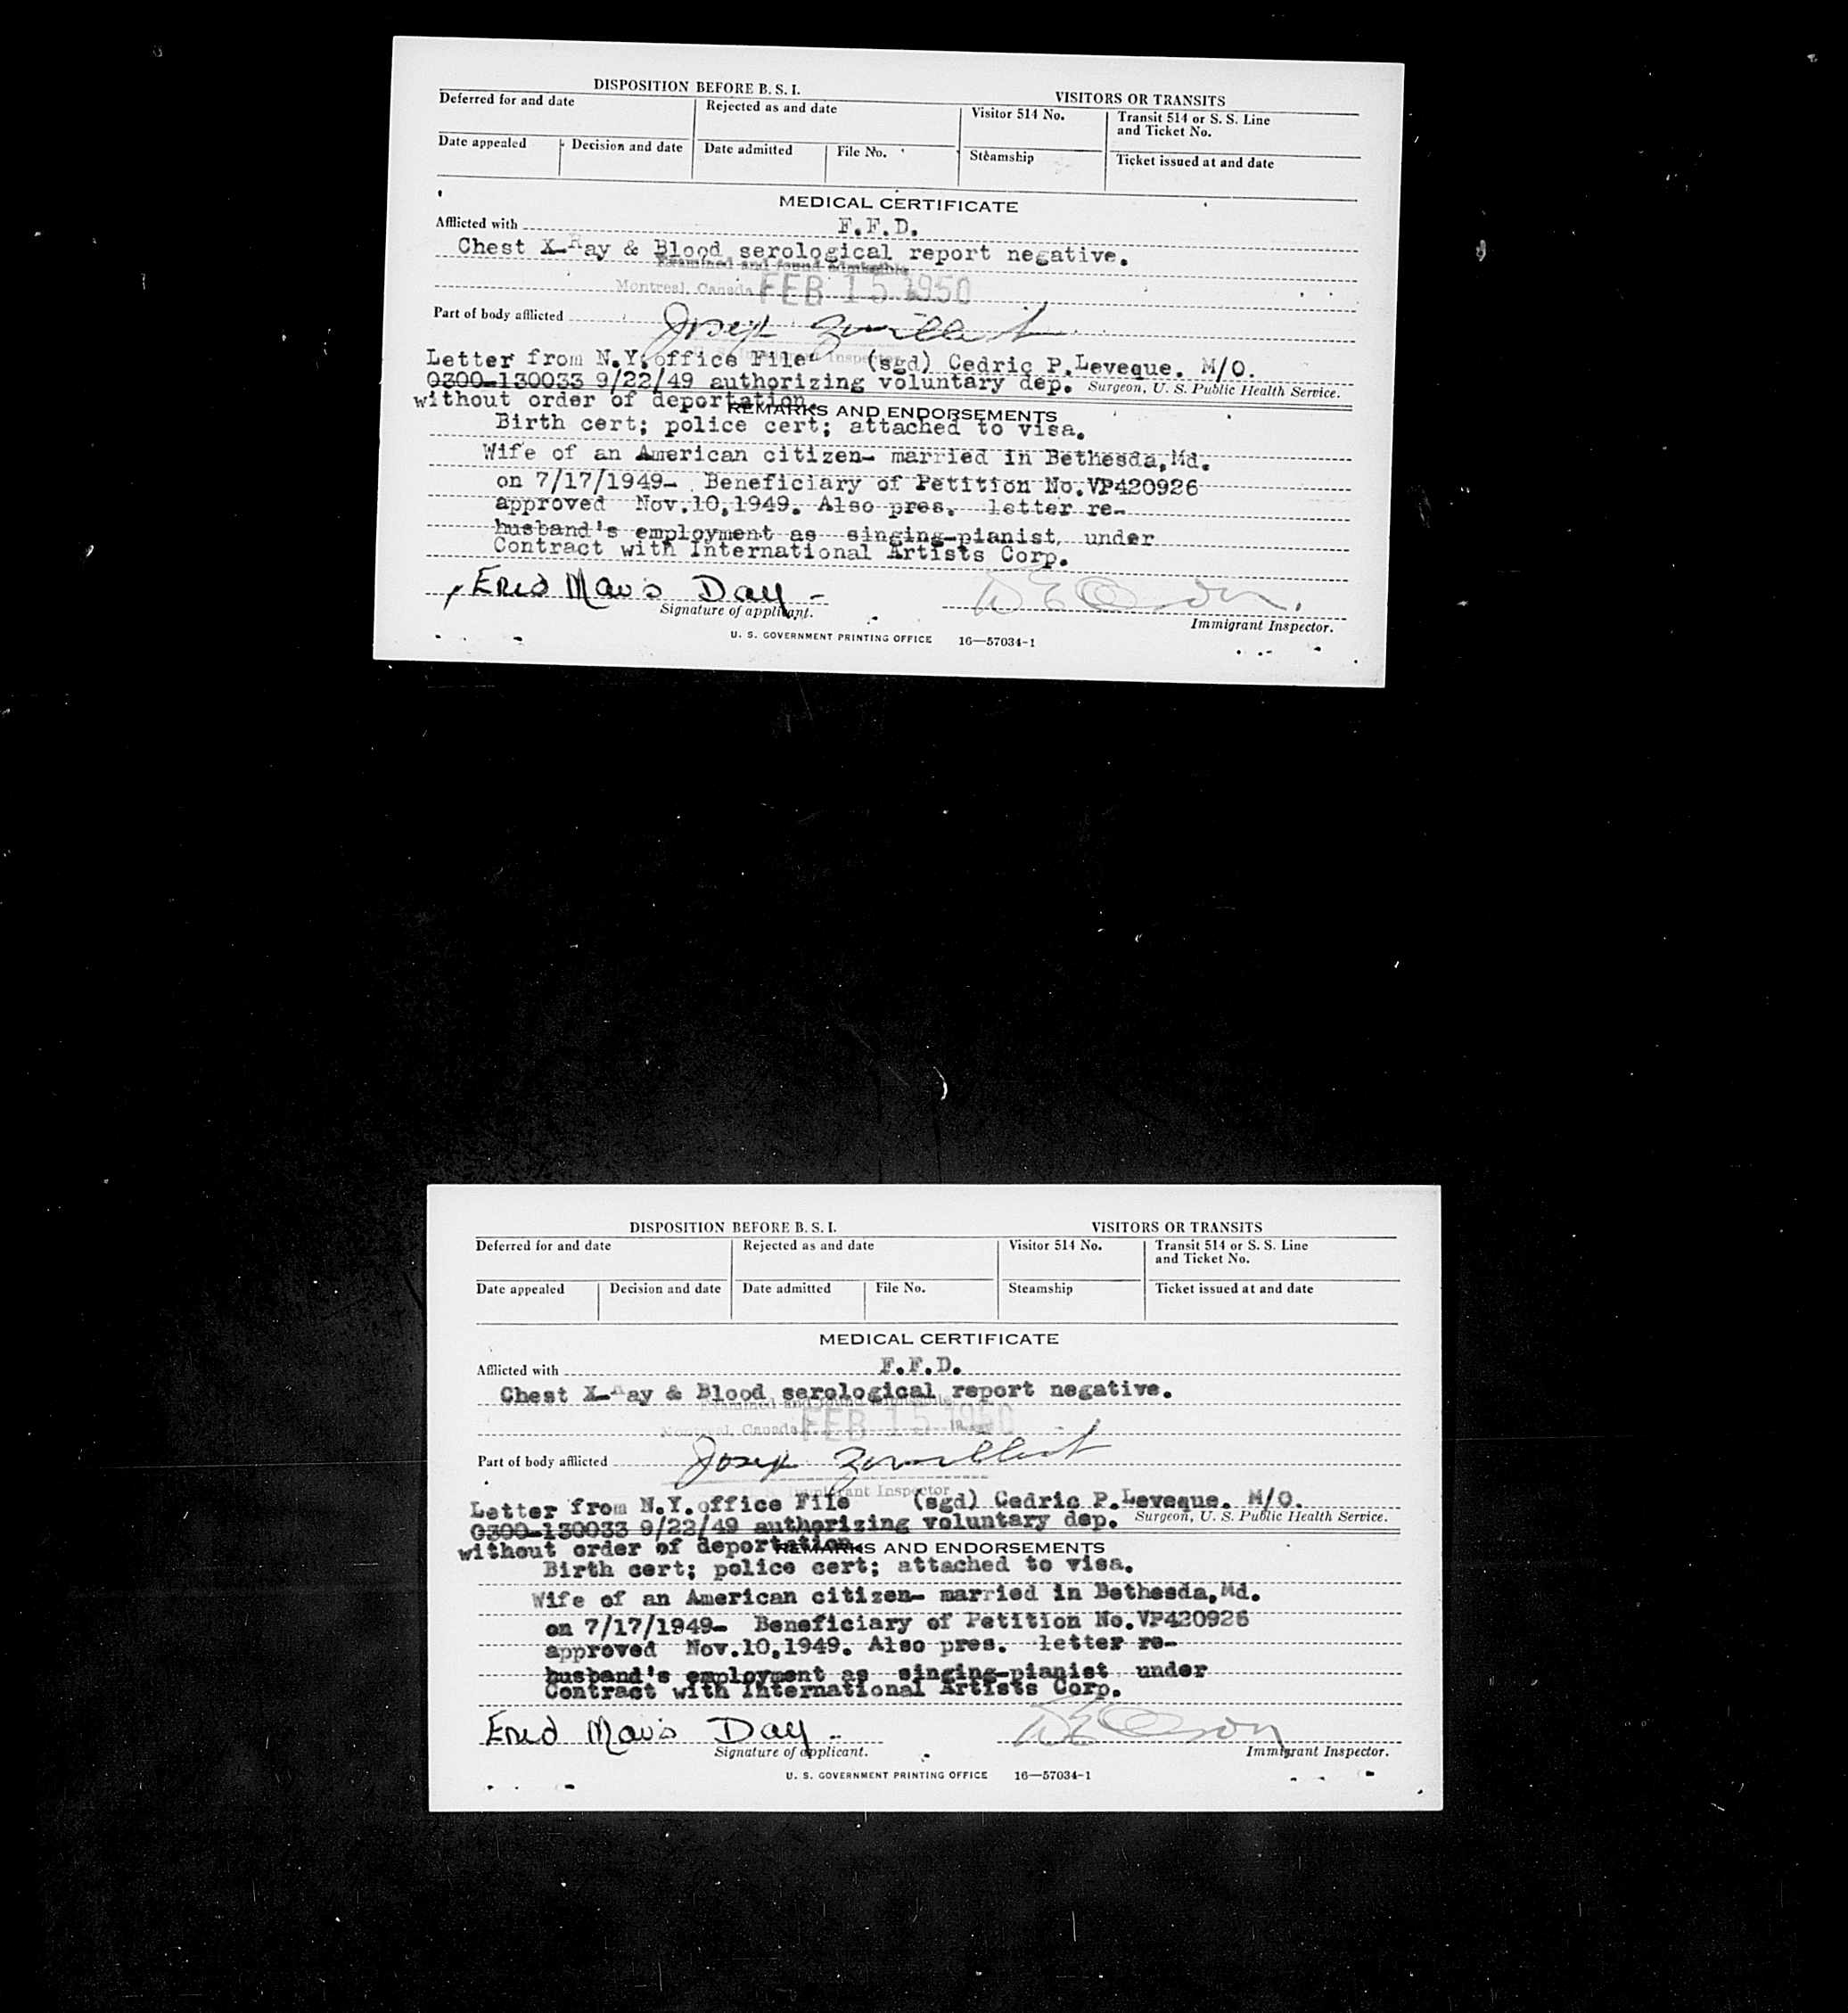 DISPOSITION BEFORE B. S. I. VISITORS OR TRANSITS
Deferred for and date Rejected as and date Visitor 514 No. Transit 514 or S. S. Line
and Ticket No.
Date appealed Decision and date Date admitted File No. Steamship Ticket issued at and date
MEDICAL CERTIFICATE
Afflicted with F.F.D.
Chest X-Ray & Blood serological report negative.
Examined and found admissible
Montreal, Canada FEB 15 1950
Part of body afflicted Joseph
Inspector
Letter from N.Y. office File (sgd) Cedric P. Leveque. M/O.
0300-130033 9/22/49 authorizing voluntary dep. Surgeon, U. S. Public Health Service.
without order of deportation.
REMARKS AND ENDORSEMENTS
Birth cert; police cert; attached to visa.
Wife of an American citizen- married in Bethesda, Md.
on 7/17/1949- Beneficiary of Petition No. VP420926
approved Nov. 10, 1949. Also pres. letter re-
husband's employment as singing-pianist, under
Contract with International Artists Corp.
Enid Mavis Day -
Signature of applicant. Immigrant Inspector.
U. S. GOVERNMENT PRINTING OFFICE 16—57034-1
DISPOSITION BEFORE B. S. I. VISITORS OR TRANSITS
Deferred for and date Rejected as and date Visitor 514 No. Transit 514 or S. S. Line
and Ticket No.
Date appealed Decision and date Date admitted File No. Steamship Ticket issued at and date
MEDICAL CERTIFICATE
Afflicted with F.F.D.
Chest X-Ray & Blood serological report negative.
Examined and found admissible
Montreal, Canada FEB 15 1950
Part of body afflicted Joseph
U. S. Immigrant Inspector
Letter from N.Y. office File (sgd) Cedric P. Leveque. M/O.
0300-130033 9/22/49 authorizing voluntary dep. Surgeon, U. S. Public Health Service.
without order of deportation.
REMARKS AND ENDORSEMENTS
Birth cert; police cert; attached to visa.
Wife of an American citizen- married in Bethesda, Md.
on 7/17/1949- Beneficiary of Petition No. VP420926
approved Nov. 10, 1949. Also pres. letter re-
husband's employment as singing-pianist under
Contract with International Artists Corp.
Enid Mavis Day -
Signature of applicant. Immigrant Inspector.
U. S. GOVERNMENT PRINTING OFFICE 16—57034-1